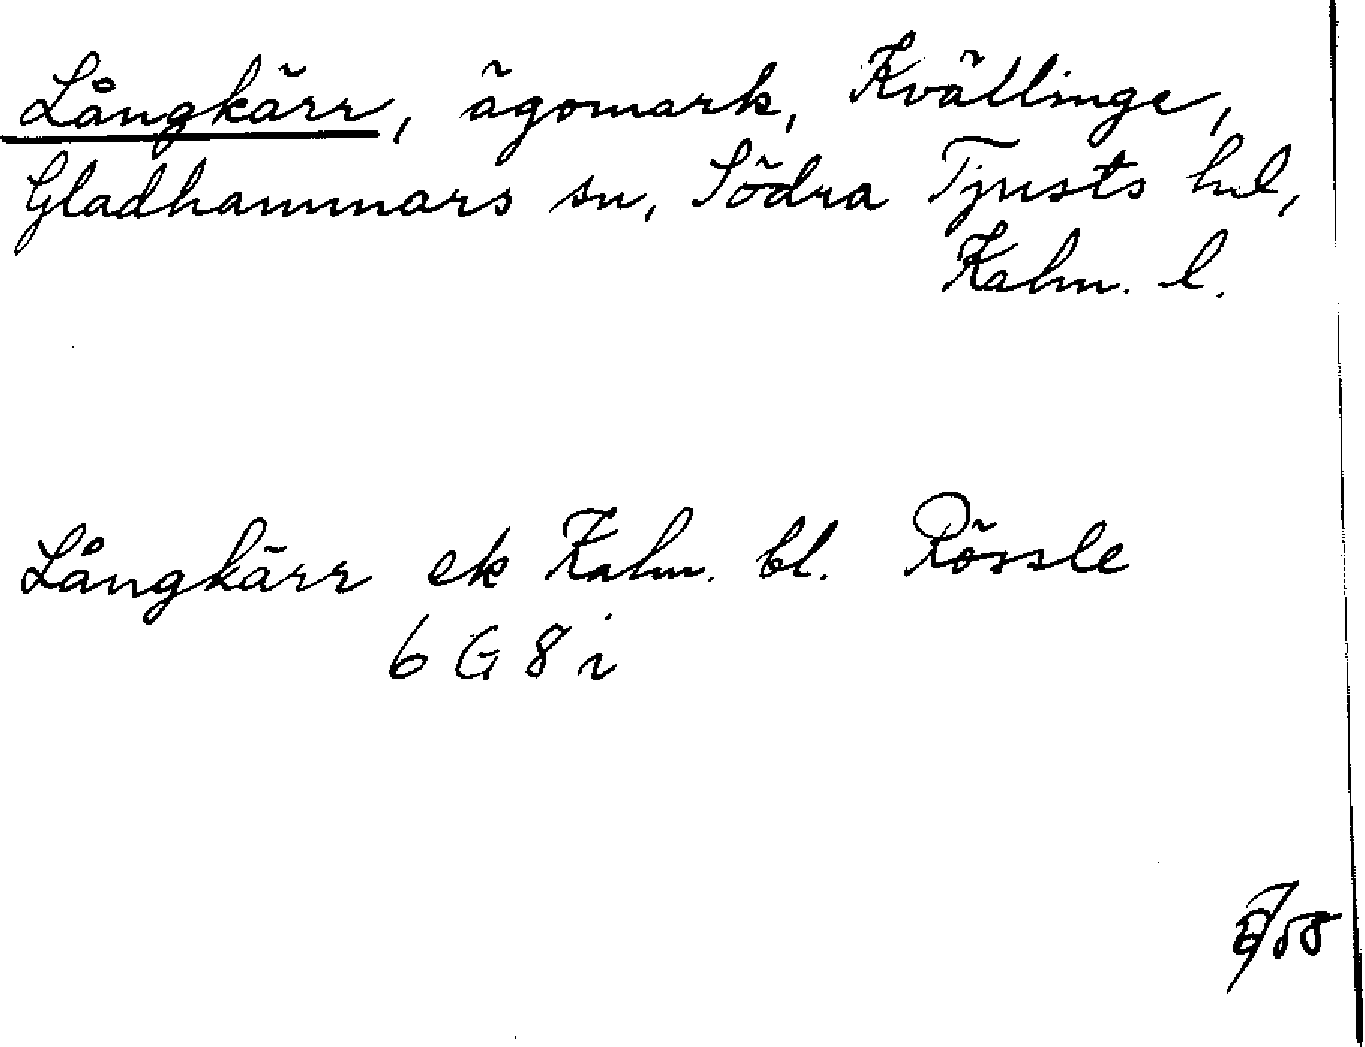 Långkärr, ägomark, Kvällinge,
Gladhammars sn, Södra Tjusts hd,
Kalm. l.
Långkärr ek Kalm. bl. Rössle
6 G 8 i